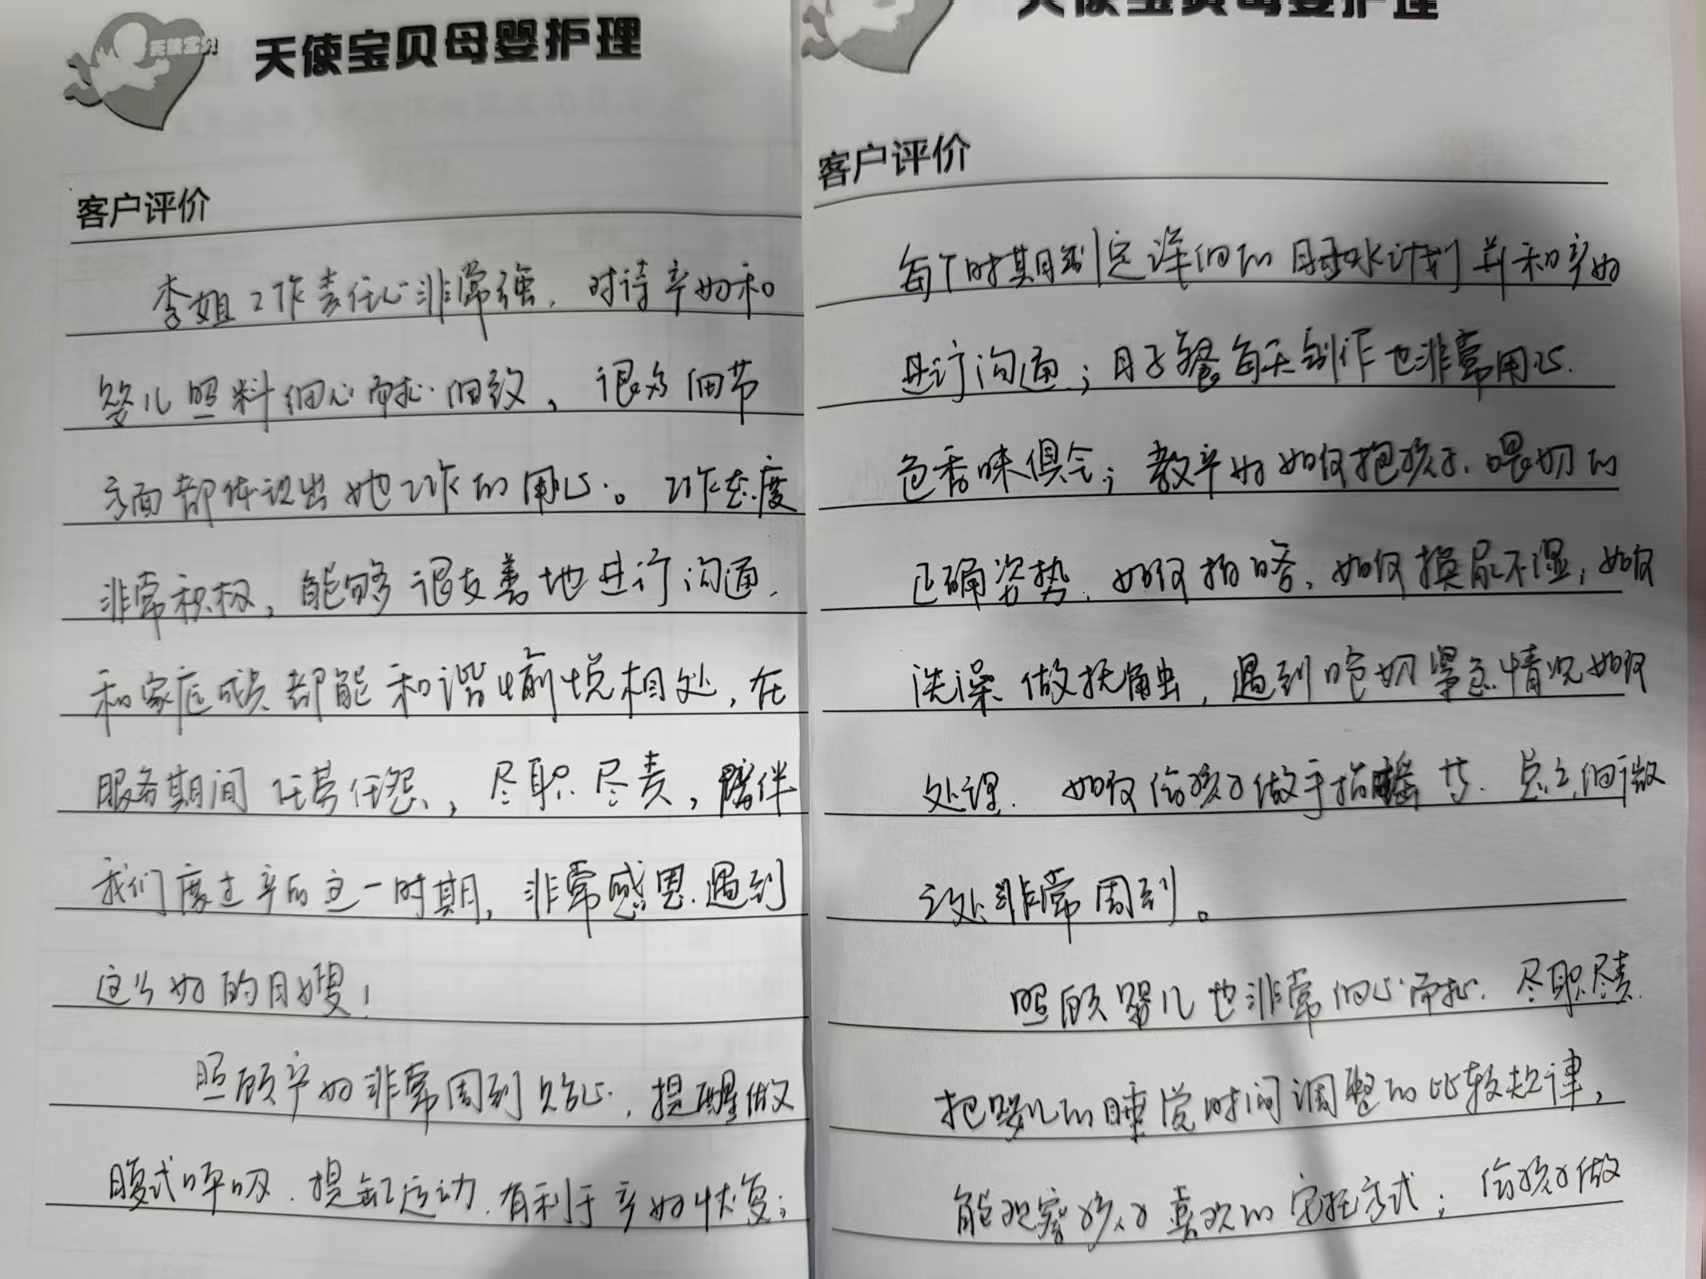 天使宝贝
天使宝贝母婴护理
客户评价
李姐工作责任心非常强，对待产妇和
婴儿照料细心耐心细致，很多细节
方面都体现出她工作的用心。工作态度
非常积极，能够很友善地进行沟通，
和家庭成员都能和谐愉悦相处，在
服务期间任劳任怨，尽职尽责，陪伴
我们度过产后这一时期，非常感恩遇到
这么好的月嫂！
照顾产妇非常周到贴心，提醒做
腹式呼吸、提肛运动，有利于产妇恢复；
天使宝贝母婴护理
客户评价
每个时期制定详细的月母水计划并和产妇
进行沟通；月子餐每天制作也非常用心，
色香味俱全；教产妇如何抱孩子、喂奶的
正确姿势、如何拍嗝、如何换尿不湿，如何
洗澡做抚触，遇到呛奶紧急情况如何
处理、如何给孩子做手指操等，总之，细微
之处非常周到。
照顾婴儿也非常细心耐心、尽职尽责，
把婴儿的睡觉时间调整的比较规律，
能观察孩子喜欢的安抚方式；给孩子做